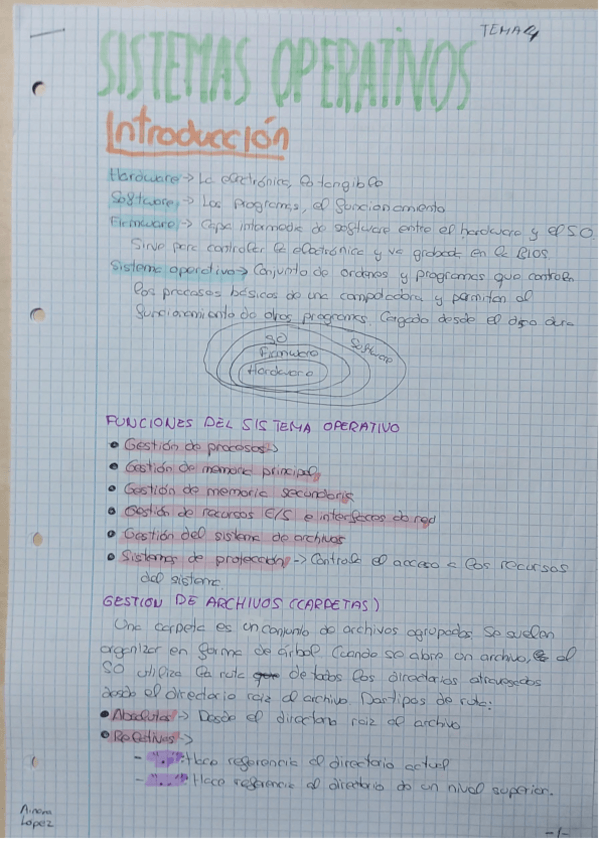 TEMA 4
SISTEMAS OPERATIVOS
Introducción
Hardware -> La electrónica, lo tangible
Software -> Los programas, el funcionamiento
Firmware -> Capa intermedia de software entre el hardware y el SO.
Sirve para controlar la electrónica y va grabada en la Bios.
Sistema operativo -> Conjunto de ordenes y programas que controlan
los procesos básicos de una computadora y permiten el
funcionamiento de otros programas. Cargado desde el disco duro
SO
Software
Firmware
Hardware
FUNCIONES DEL SISTEMA OPERATIVO
• Gestión de procesos ->
• Gestión de memoria principal
• Gestión de memoria secundaria
• Gestión de recursos E/S e interfaces de red
• Gestión del sistema de archivos
• Sistemas de protección -> Controla el acceso a los recursos
del sistema
GESTION DE ARCHIVOS (CARPETAS)
Una carpeta es un conjunto de archivos agrupados. Se suelen
organizar en forma de árbol. Cuando se abre un archivo, el
SO utiliza la ruta de todos los directorios atravesados
desde el directorio raiz al archivo. Dos tipos de ruta:
• Absolutas -> Desde el directorio raiz al archivo
• Relativas ->
- ".": Hace referencia al directorio actual
- "..": Hace referencia al directorio de un nivel superior.
Ainara
Lopez
-1-